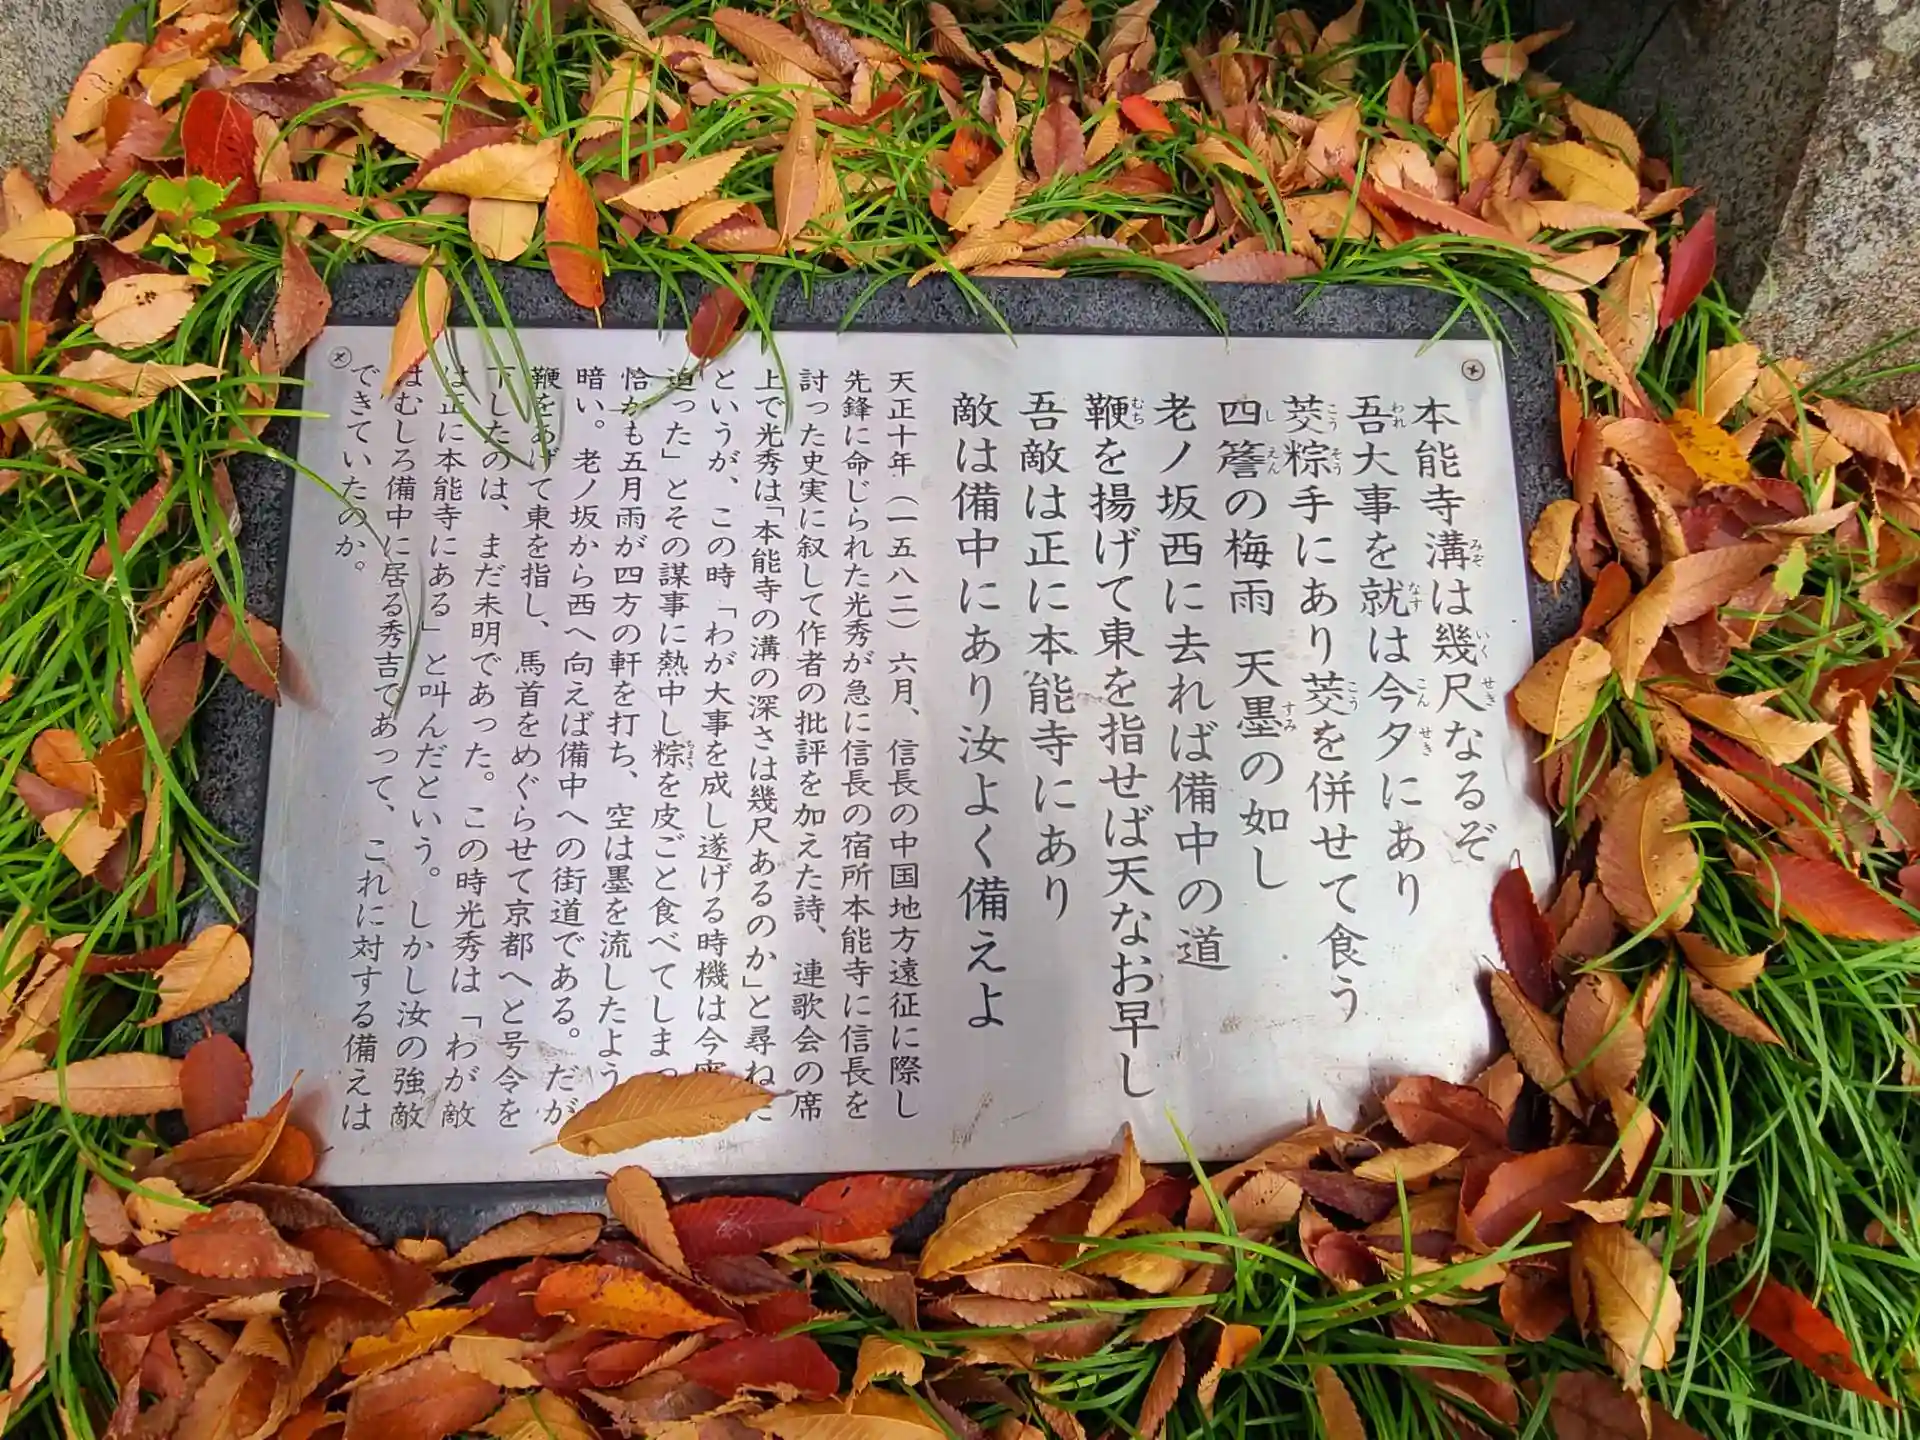 本能寺溝は幾尺なるぞ
吾大事を就は今夕にあり
茭粽手にあり茭を併せて食う
四簷の梅雨 天墨の如し
老ノ坂西に去れば備中の道
鞭を揚げて東を指せば天なお早し
吾敵は正に本能寺にあり
敵は備中にあり汝よく備えよ
天正十年(一五八二)六月、信長の中国地方遠征に際し
先鋒に命じられた光秀が急に信長の宿所本能寺に信長を
討った史実に叙して作者の批評を加えた詩、連歌会の席
上で光秀は「本能寺の溝の深さは幾尺あるのか」と尋ねた
というが、この時「わが大事を成し遂げる時機は今
迫った」とその謀事に熱中し粽を皮ごと食べてしまっ
恰かも五月雨が四方の軒を打ち、空は墨を流したよう
暗い。老ノ坂から西へ向えば備中への街道である。だが
鞭をあげて東を指し、馬首をめぐらせて京都へと号令を
下したのは、まだ未明であった。この時光秀は「わが敵
は正に本能寺にある」と叫んだという。しかし汝の強敵
はむしろ備中に居る秀吉であって、これに対する備えは
できていたのか。